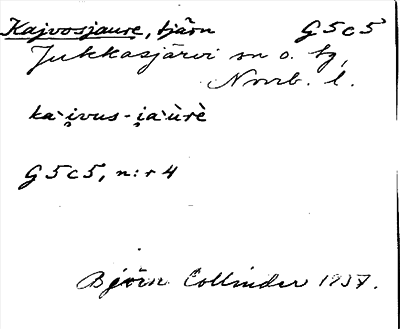 Kajvosjaure, tjärn G5c5
Jukkasjärvi sn o. tg,
Norrb. l.
ka`i̯vus-i̯a`ùrè
G5c5, n:r 4
Björn Collinder 1937.